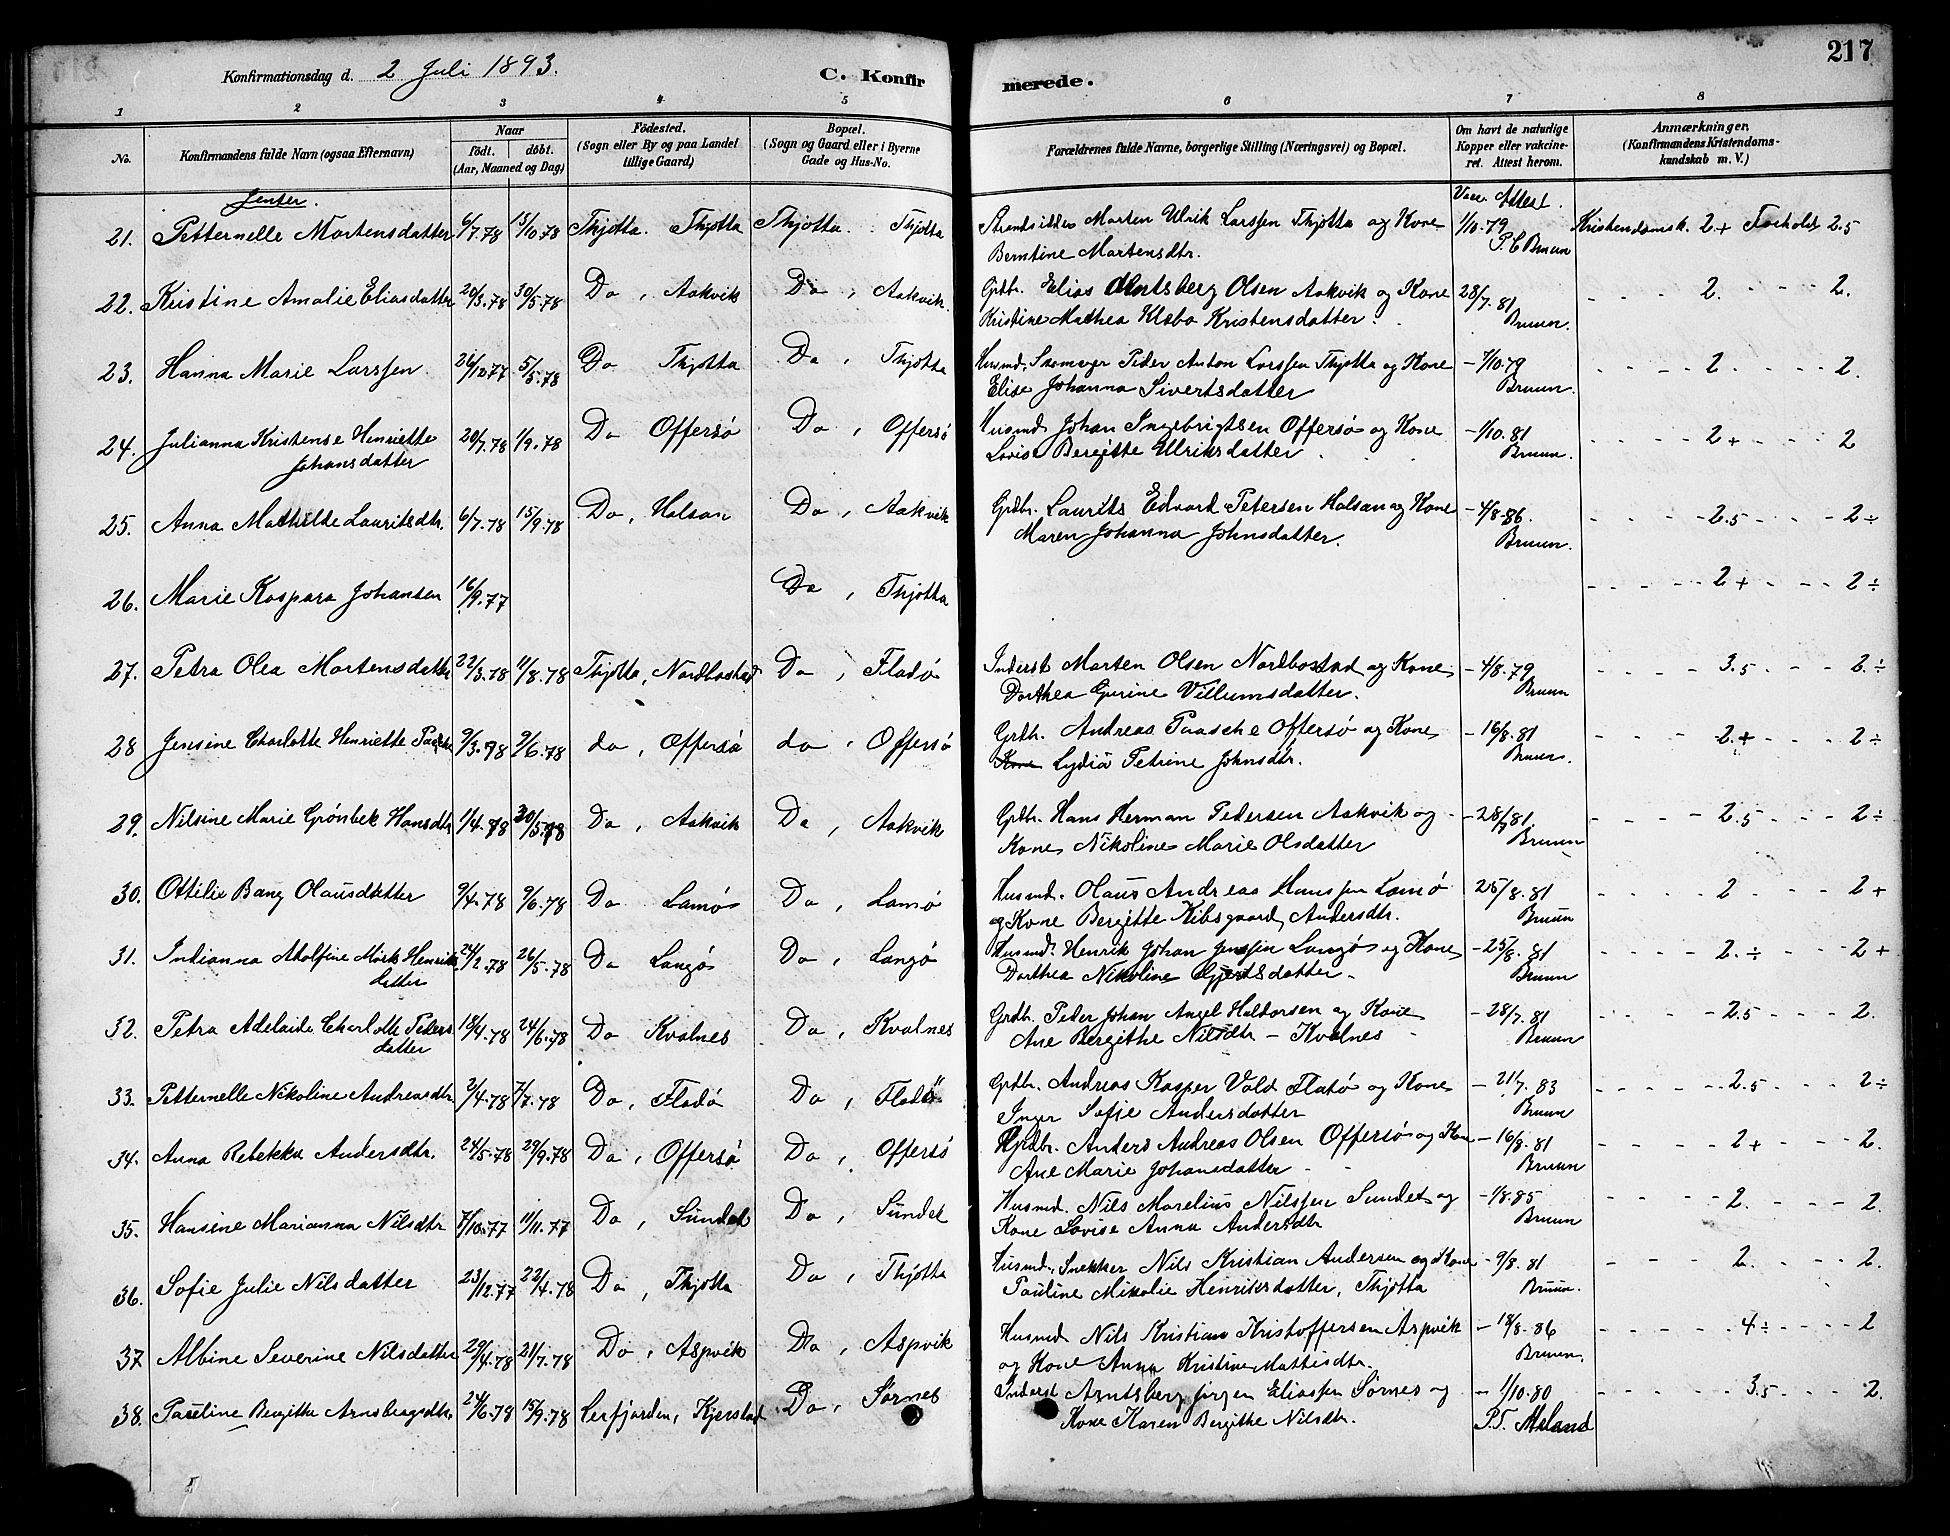 217
Konfirmationsdag d. 2 Juli 1893. C. Konfirmerede.
1 2 3 4 5 6 7 8
No. Konfirmandens fulde Navn (ogsaa Efternavn) Naar födt. döbt. (Aar, Maaned og Dag) Födested. (Sogn eller By og paa Landet tillige Gaard) Bopæl. (Sogn og Gaard eller i Byerne Gade og Hus-No. Forældrenes fulde Navne, borgerlige Stilling (Næringsvei) og Bopæl. Om havt de naturlige Kopper eller vakcineret. Attest herom. Anmærkninger. (Konfirmandens Kristendomskundskab m. V.)
Jenter. Vacc. Attest.
21. Petternelle Mortensdatter 6/7.78 13/10.78 Thjøtta. Thjøtta Thjøtta. Thjøtta Strandsidder Morten Ulrik Larssen Thjøtta og Kone 1/10.79 Kristendomsk. 2+ Forhold 2.5
Berntine Martensdtr. P.C Bruun
22. Kristine Amalie Eliasdatter 20/3.78 30/5.78 Do, Aakvik Do, Aakvik. Grdbr. Elias Arntsberg Olsen Aakvik og Kone 28/7.81 - - - - 2. - - - 2.
Kristine Mathea Klæbo Kristensdatter. Bruun.
23. Hanna Marie Larssen 21/12.77 5/5.78 Do Thjøtta Do, Thjøtta Husmd, Skomager Peder Anton Larssen Thjøtta og Kone - 7/10.79 - - - - 2 - - - 2.
Elise Johanna Sivertsdatter Bruun.
24. Julianna Kristense Henriette 20/7.78 1/9.78 Do Offersø Do, Offersø Husmd Johan Ingebrigtsen Offersø og Kone - 1/10.81 - - - - 2+ - - - 2
Johansdatter Lovise Bergitte Ulriksdatter. Bruun.
25. Anna Mathilde Lauritsdtr. 6/7.78 15/9.78 Do, Halsan Do, Aakvik Grdbr. Laurits Edvard Petersen Halsan og Kone - 4/8.86. - - - - 2.5 - - - 2÷
Maren Johanna Johnsdatter. Bruun.
26. Marie Kaspara Johansen 16/9.77 Do, Thjøtta - - - - 2+ - - - 2÷
27. Petra Olea Mortensdatter 22/3.78 11/8.78 Thjøtta, Nordbostad Do, Fladø Inderst Morten Olsen Nordbostad og Kone - 4/8.79 - - - - 3.5 - - - 2÷
Dorthea Gurine Villumsdatter. Bruun
28 Jensine Charlotte Henriette Paasche 9/3.78 9/6.78 do, Offersø do, Offersø Grdbr. Andreas Paasche Offersø og Kone - 16/8.81 - - - - 2.+ - - - 2÷
Kone Lydia Petrine Johnsdtr. Bruun.
29. Nilsine Marie Grønbek Hansdtr 1/4.78 30/5.78 Do, Aakvik Do, Aakvik Grdbr. Hans Herman Pedersen Aakvik og - 28/7.81. - - - - 2.5 - - - 2÷
Kone Nikoline Marie Olsdatter Bruun
30. Ottilie Bang Olausdatter 9/4.78 9/6.78 Do Lamø Do, Lamø Husmd. Olaus Andreas Hanssen Lamø - 25/8.81 - - - - 2 - - - 2+
og Kone Bergitte Kibsgaard Andersdtr. Bruun
31. Indianna Adolfine Mörk Henriks 24/2.78 26/5.78 Do Langø Do, Langø Husmd. Henrik Johan Jenssen Langø og Kone - 25/8.81 - - - - 2.÷ - - - 2+
datter Dorthea Nikoline Gjertsdatter. Bruun
32. Petra Adelaide Charlotte Peders 18/4.78 24/6.78 Do Kvalnes Do, Kvalnes Grdbr. Peder Johan Angel Haldorsen og Kone - 28/7.81 - - - - 2.5 - - - 2.
datter Ane Bergithe Nilsdtr - Kvalnes - Bruun
33. Petternelle Nikoline Andreasdtr. 2/4.78 7/7.78 Do, Fladø Do, Fladö Grdbr. Andreas Kasper Vold Fladø og Kone - 21/7.83 - - - - 2.5 - - - 2÷
Inger Sofie Andersdatter Bruun
34. Anna Rebekka Andersdtr. 24/5.78 29/9.78 Do, Offersø Do, Offersö Grdbr. Anders Andreas Olsen Offersø og Kone - 16/8.81 - - - - 2+ - - - 2.
Ane Marie Johansdatter - Bruun
35. Hansine Marianna Nilsdtr 7/10.77 11/11.77 Do, Sundet Do, Sundet Husmd. Nils Marelius Nilssen Sundet og - 1/8.85 - - - - 2. - - - 2.
Kone Lovise Anna Andersdtr Bruun
36. Sofie Julie Nilsdatter 23/12.77 22/4.78 Do, Thjøtta Do, Thjøtta Husmd. Snekker Nils Kristian Andersen og Kone - 9/8.81 - - - 2. - - - 2.
Pauline Mikalie Henriksdatter, Thjøtta Bruun.
37 Albine Severine Nilsdatter 29/4.78 21/7.78 Do, Aspvik Do, Aspvik Husmd Nils Kristian Kristoffersen Aspvik - 18/8.86 - - - - 4÷ - - - 2
og Kone Anna Kristine Mattisdtr. Bruun.
38. Pauline Bergitte Arnsbergsdtr. 24/6.78 15/9.78 Lerfjorden, Kjerstad Do, Sørnes Inderst Arntsberg Jørgen Eliassen Sörnes og - 1/10.80 - - - - 3.5 - - - 2.
Kone Karen Bergithe Nilsdtr. P.T. Meland